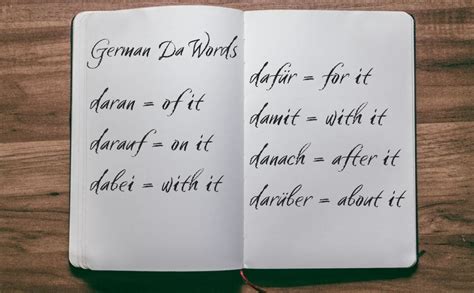 German Da Words
daran = of it
darauf = on it
dabei = with it
dafür = for it
damit = with it
danach = after it
darüber = about it